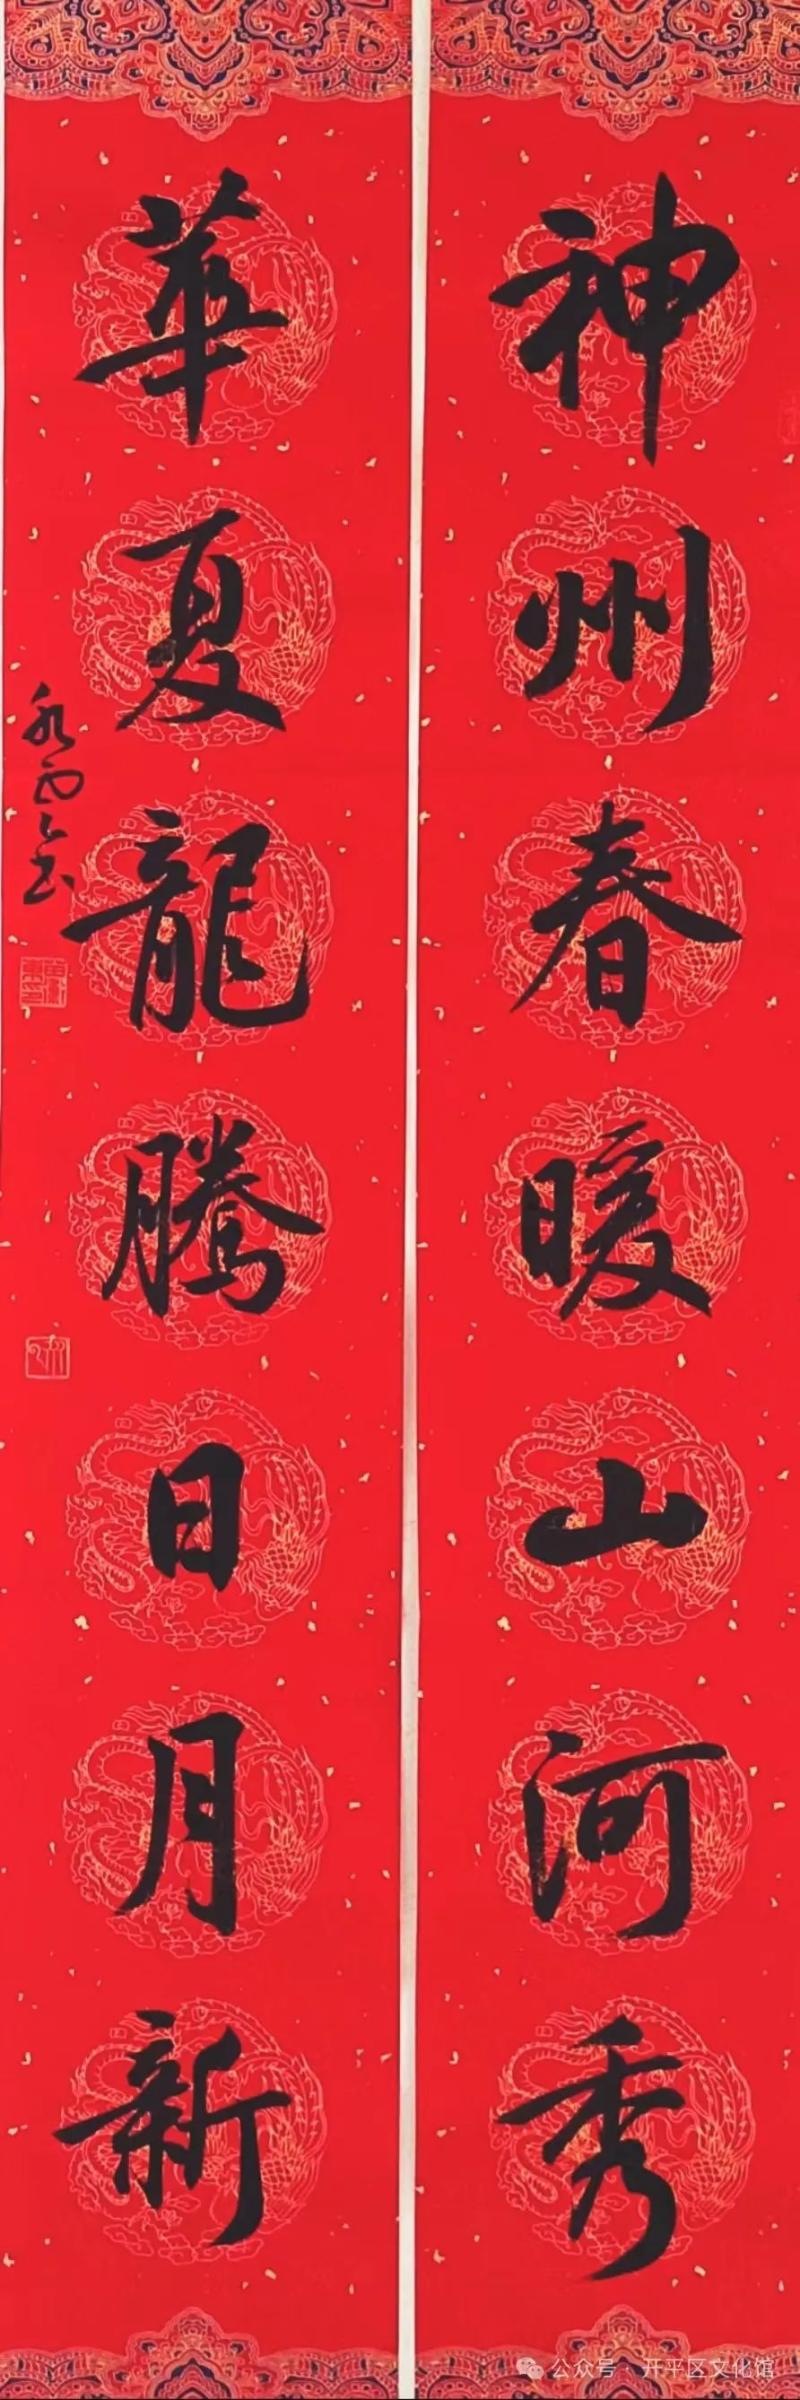 神州春暖山河秀
華夏龍騰日月新
公众号 · 开平区文化馆